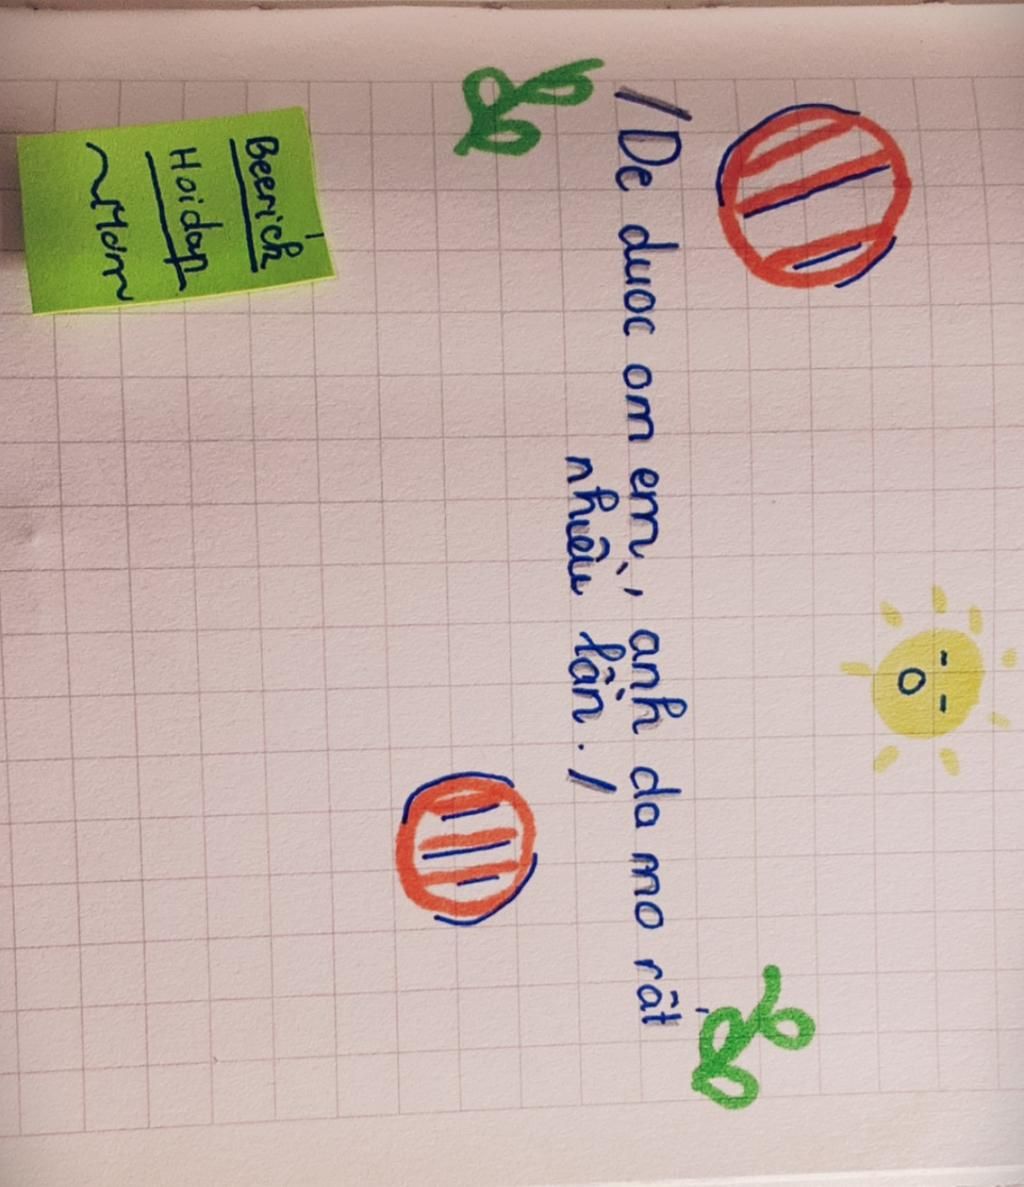 /De duoc om em, anh da mo rất
nhiều lần./
Beerich
Hoidap
~Mam